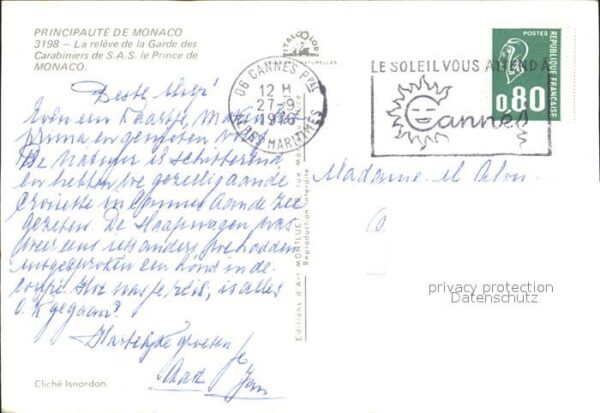 PRINCIPAUTÉ DE MONACO
3198 – La relève de la Garde des
Carabiniers de S.A.S. le Prince de
MONACO.
ITALCOLOR
06 CANNES PPAL
12 H
27-9
1976
ALPES MARITIMES
LE SOLEIL VOUS ATTEND A
Cannes
POSTES
REPUBLIQUE FRANÇAISE
0,80
Beste
Even een kaartje,
prima en genoten
De natuur is schitterend
en hebben we gezellig aan de
Croisette in Cannes aan de Zee
gezeten. De Slaapwagen was
weer eens iets anders, we hadden
een hond in de
coupé. Hoe was je reis, is alles
O.K. gegaan?
Hartelijke groeten
Aad
Madame
Editions d'Art MONTLUET
Reproduction Interdite
privacy protection
Datenschutz
Cliché Isnardon.